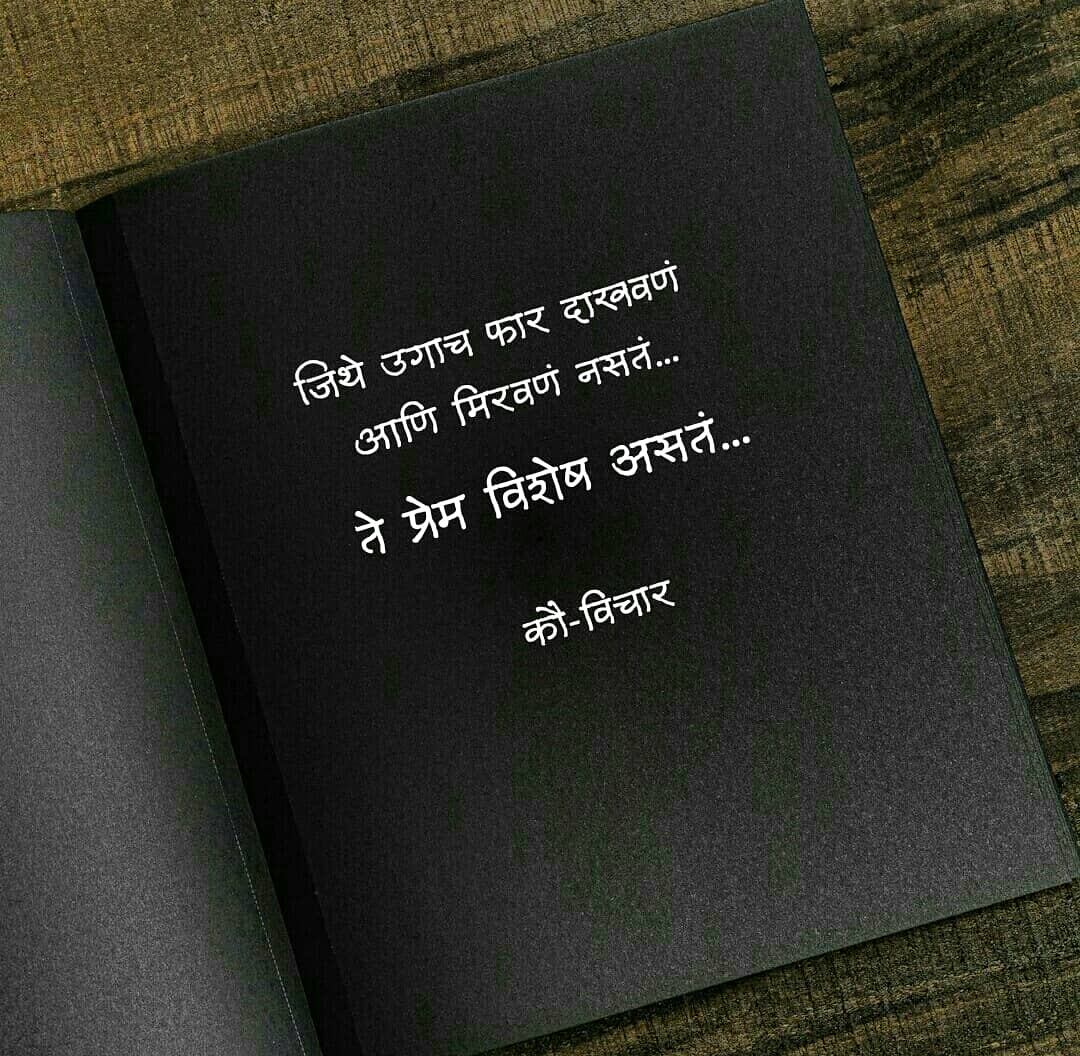 जिथे उगाच फार दाखवणं
आणि मिरवणं नसतं...
ते प्रेम विशेष असतं...
कौ-विचार